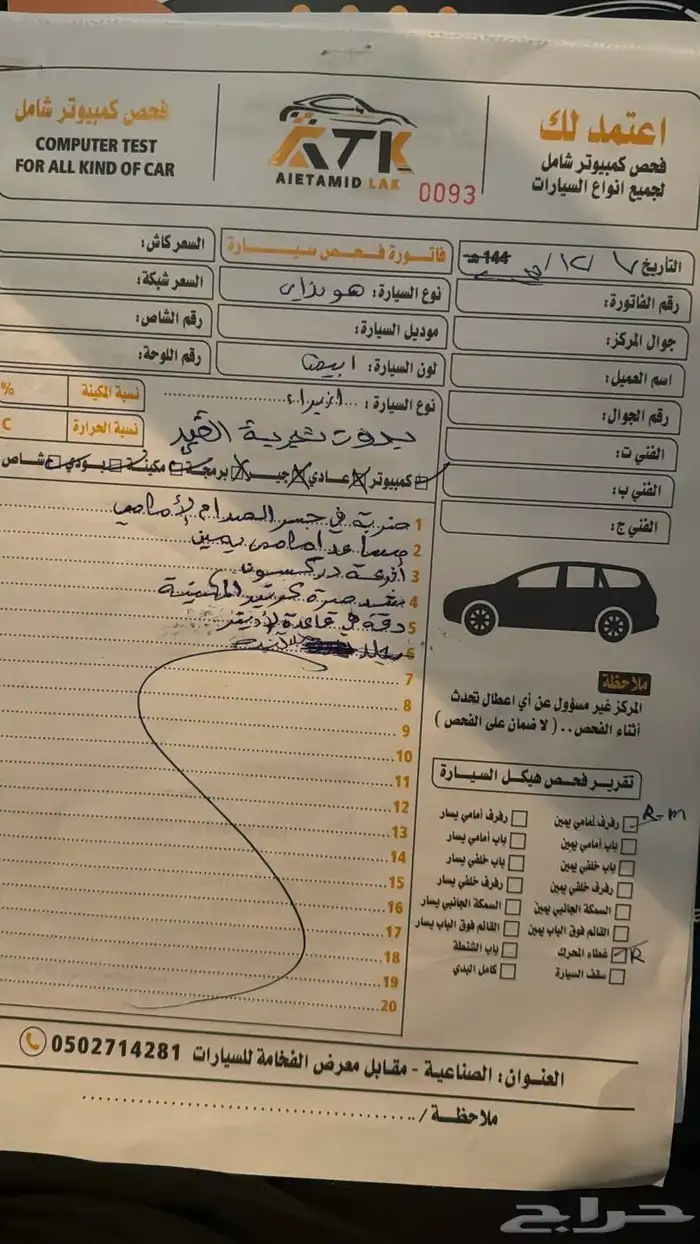 اعتمد لك
فحص كمبيوتر شامل
لجميع انواع السيارات
ATK
AIETAMID LAK
0093
فحص كمبيوتر شامل
COMPUTER TEST
FOR ALL KIND OF CAR
التاريخ ١٢/ 144هـ
فاتورة فحص سيارة
السعر كاش:
رقم الفاتورة:
نوع السيارة: هونداي
السعر شبكة:
جوال المركز:
موديل السيارة:
رقم الشاص:
اسم العميل:
لون السيارة: ابيض
رقم اللوحة:
رقم الجوال:
نوع السيارة: ازيرا
نسبة المكينة %
الفني ت:
بدون تجربة
نسبة الحرارة C
الفني ب:
كمبيوتر عادي جير برمجة مكينة بودي شاص
الفني ج:
1 ضربة في جسر الصدام الأمامي
2 مساعد امامي يمين
3 أذرعة دركسون
4
5 دقة في قاعدة
6
7
8
9
10
11
12
13
14
15
16
17
18
19
20
ملاحظة
المركز غير مسؤول عن أي اعطال تحدث
أثناء الفحص .. ( لا ضمان على الفحص )
تقرير فحص هيكل السيارة
رفرف أمامي يمين R-M
رفرف أمامي يسار
باب أمامي يمين
باب أمامي يسار
باب خلفي يمين
باب خلفي يسار
رفرف خلفي يمين
رفرف خلفي يسار
السمكة الجانبي يمين
السمكة الجانبي يسار
القائم فوق الباب يمين
القائم فوق الباب يسار
غطاء المحرك R
باب الشنطة
سقف السيارة
كامل البدي
العنوان: الصناعية - مقابل معرض الفخامة للسيارات 0502714281
ملاحظة /
حراج